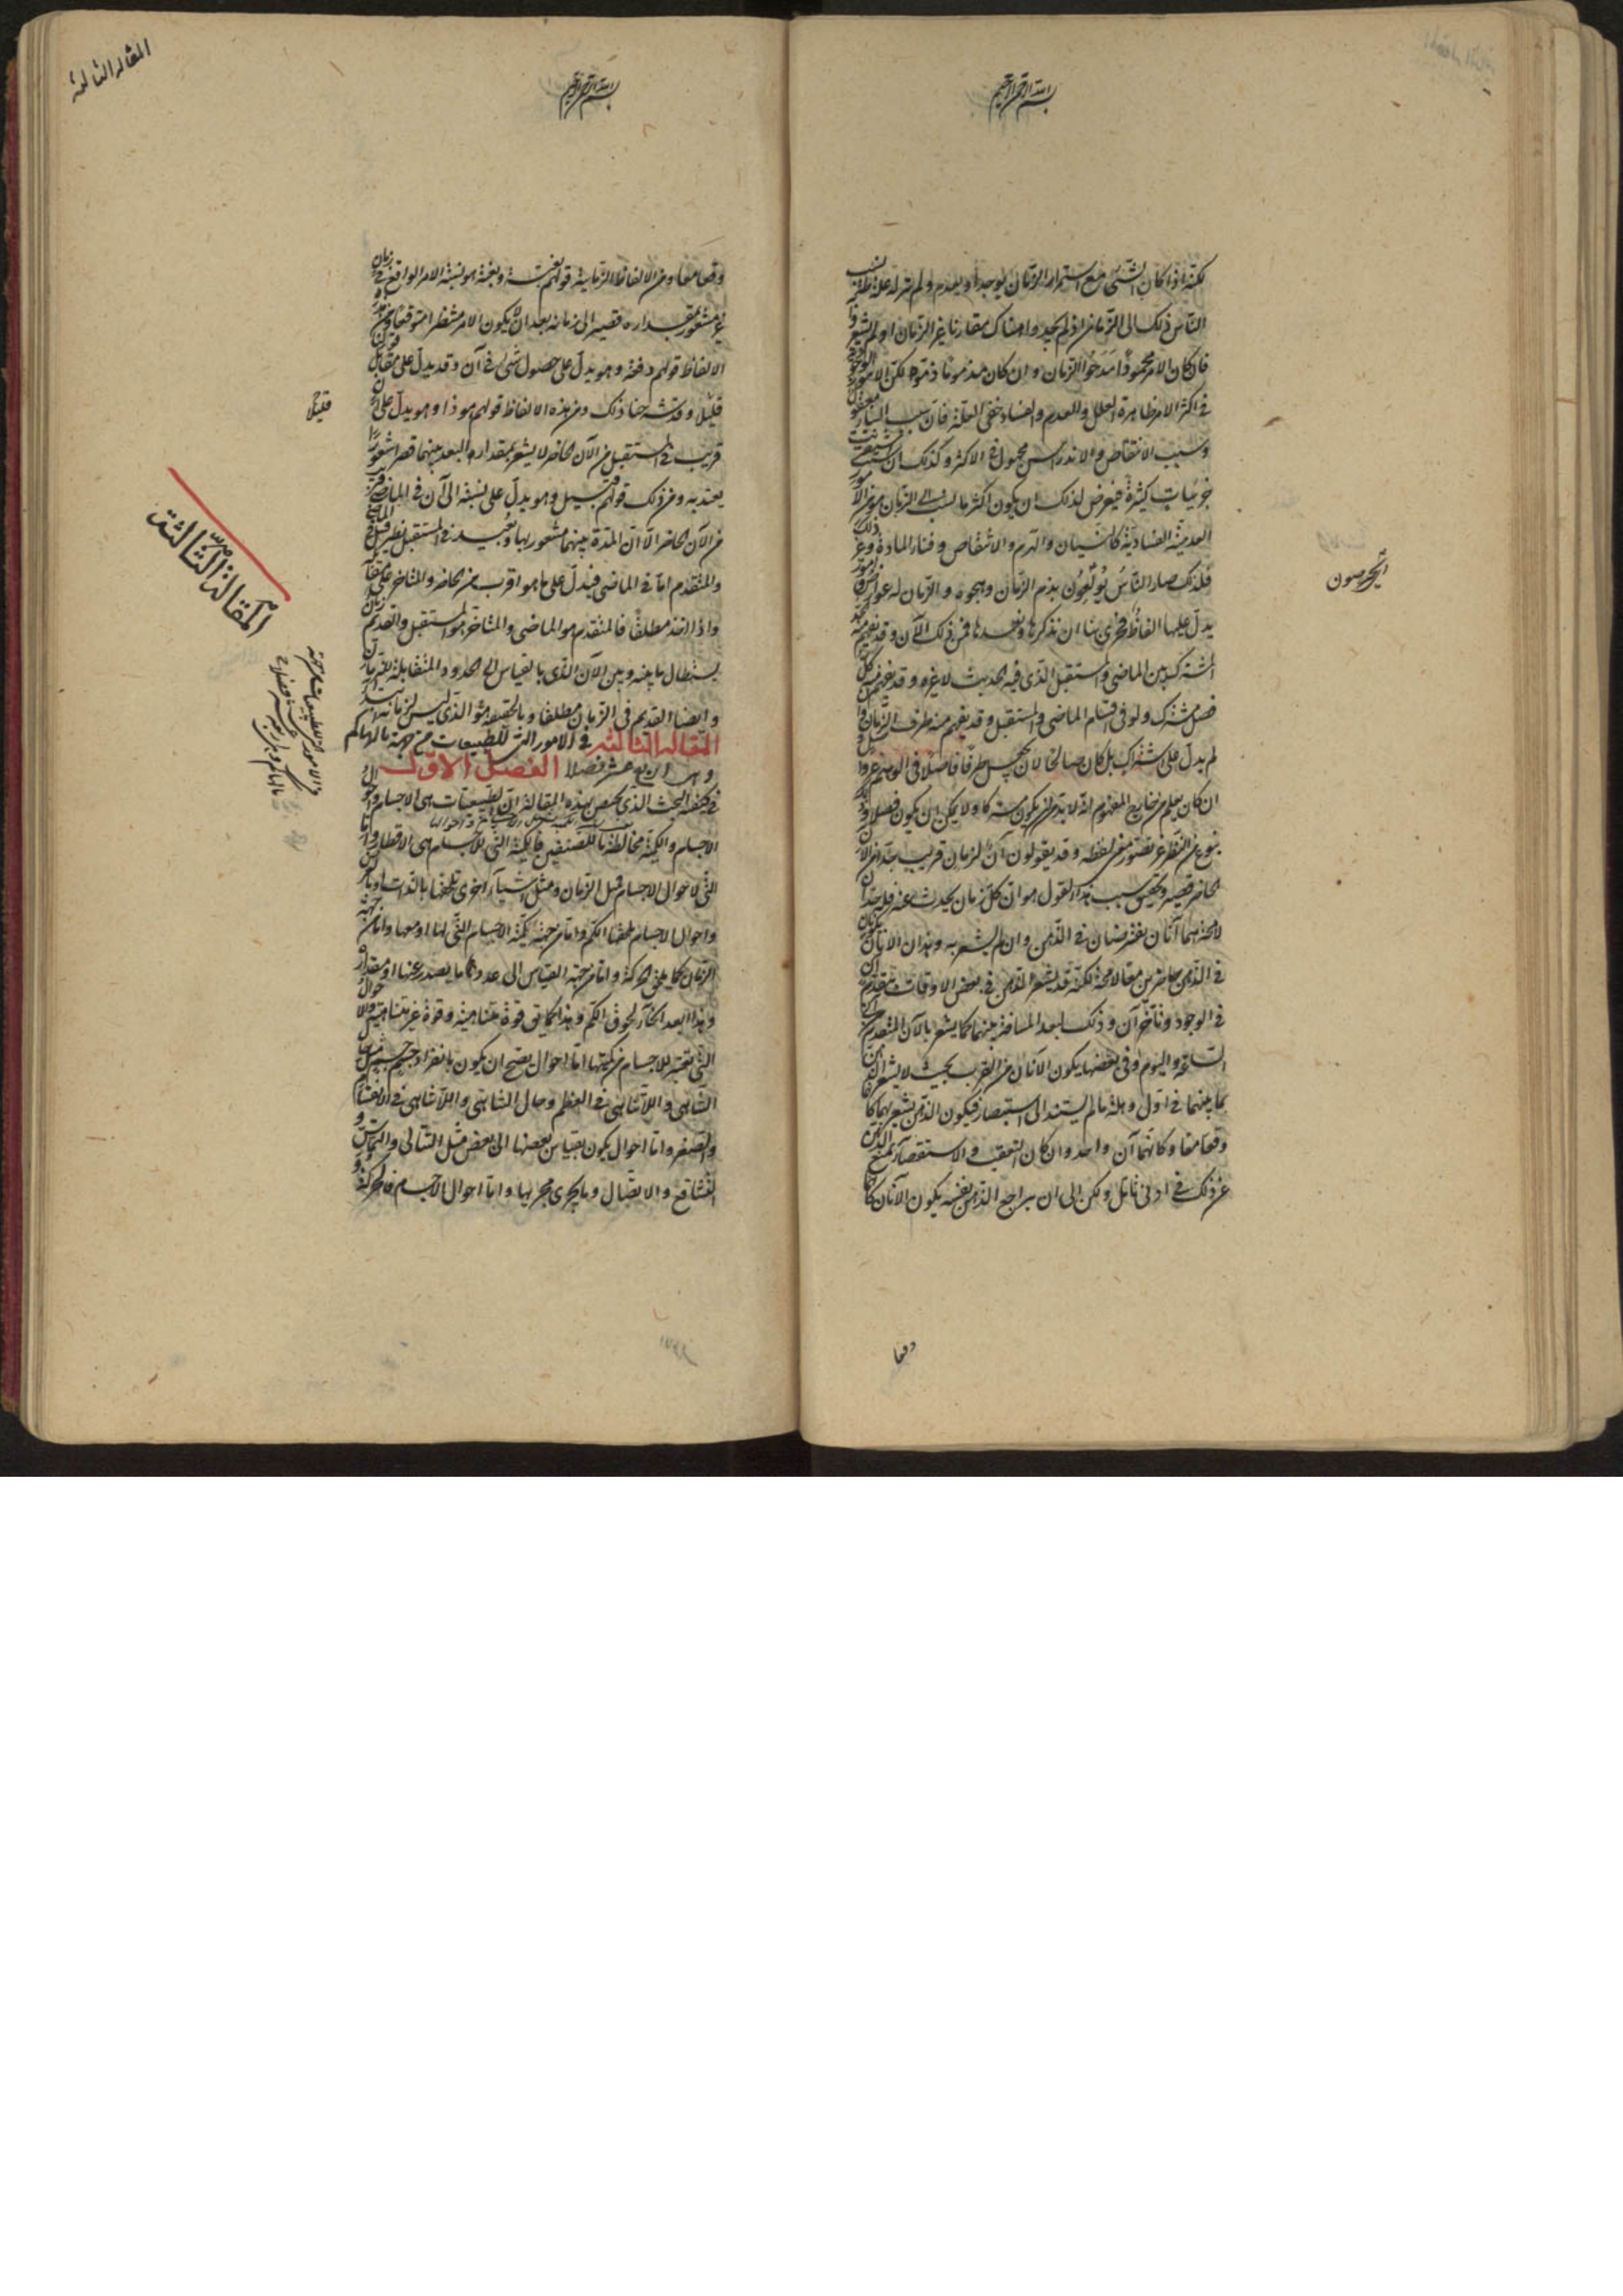 بسم الله الرحمن الرحيم
لكنه اذا كان الشئ مع استمرار الزمان يوجد او يعدم ولم تر له علة ظاهرة نسب
الناس ذلك الى الزمان اذ لم يجدوا هناك مقارنا غير الزمان او لم يشعروا
فان كان الامر محمودا مدحوا الزمان وان كان مذموما ذموه لكن الامور الوجودية
فى اكثر الامر ظاهرة العلل والعدم والفساد خفى العلة فان سبب البناء معقول
وسبب الانتقاض والاندراس مجهول فى الاكثر وكذلك ان شئت استقريت
جزئيات كثيرة فيعرض لذلك ان يكون اكثر ما ينسب الى الزمان هو من الامور
العدمية الفسادية كالنسيان والهرم والانتقاض وفناء المادة وغير ذلك
فلذلك صار الناس يولعون بذم الزمان وهجوه والزمان له عوارض وامور
يدل عليها الفاظ فحرى بنا ان نذكرها ونعددها فمن ذلك الآن وقد يفهم منه الحد
المشترك بين الماضى والمستقبل الذى فيه الحديث لا غيره وقد يفهم منه كل
فصل مشترك ولو فى اقسام الماضى والمستقبل وقد يفهم منه طرف الزمان وان
لم يدل على اشتراك بل كان صالحا لان يجعل طرفا فاصلا فى الوهم غير واصل
ان كان يعلم من خارج المفهوم انه لا بد من ان يكون مشتركا ولا يمكن ان يكون فصلا وذلك
بنوع من النظر غير تصور معنى لفظه وقد يقولون آن لزمان قريب جدا من الآن
الحاضر قصير وتحقيق سبب هذا القول هو ان كل زمان يحدث عنه فله حدان
لا محة هما آنان يفترضان فى الذهن وان لم يشعر به وهذان الآنان يكونان
فى الذهن حاضرين معا لا محة لكنه قد يشعر الذهن فى بعض الاوقات بتقدم آن
فى الوجود وتأخر آن وذلك لبعد المسافة بينهما كما يشعر بالآن المتقدم من آنى
الساعة واليوم وفى بعضها يكون الآنان من القرب بحيث لا يشعر الذهن
بما بينهما فى اول وهلة ما لم يستند الى استبصار فيكون الذهن يشعر بهما كانهما
وقعا معا وكانهما آن واحد وان كان التعقب والاستقصاء يمنع الذهن
عن ذلك فى ادنى تأمل ولكن الى ان يراجع الذهن نفسه يكون الآنان كانهما
وقعا
بسم الله الرحمن الرحيم
المقالة الثالثة
وقعا معا ومن الالفاظ الزمانية قولهم بغتة وبغتة هو نسبة الامر الواقع فى زمان
غير مشعور بمقداره قصير الى زمانه بعد ان لا يكون الامر منتظرا متوقعا ومن هذه
الالفاظ قولهم دفعة وهو يدل على حصول شئ فى آن وقد يدل على مقابل قولنا
قليلا قليلا
قليلا وقد شرحنا ذلك ومن هذه الالفاظ قولهم هو ذا وهو يدل على آن
قريب فى المستقبل من الآن الحاضر لا يشعر بمقدار البعد بينهما قصرا شعورا
يعتد به ومن ذلك قولهم قبيل وهو يدل على نسبة الى آن فى الماضى قريب
من الآن الحاضر الا ان المدة بينهما مشعور بها وبُعَيد فى المستقبل نظير قبل فى الماضى
والمتقدم اما فى الماضى فيدل على ما هو اقرب من الحاضر والمتاخر على مقابله
واذا اخذ مطلقا فالمتقدم هو الماضى والمتاخر هو المستقبل والقديم زمان
يستطال ما بينه وبين الآن الذى بالقياس الى الحدود المتقابلة للزمان
وايضا القديم فى الزمان مطلقا وبالحقيقة هو الذى ليس لزمانه ابتداء
المقالة الثالثة فى الامور التى للطبيعيات من جهة ما لها كم
وهى اربعة عشر فصلا الفصل الاول
فى كيفية البحث الذى يختص بهذه المقالة ان الطبيعيات هى الاجسام واحوال
الاجسام والكمية مخالطة بالصنفين فالكمية التى للاجسام هى الاقطار واما
التى لاحوال الاجسام فمثل الزمان ومثل اشياء اخرى تلحقها بالذات او بالعرض
واحوال الاجسام تلحقها الكم واما من جهة كمية الاجسام التى لها او معها واما من جهة
الزمان كما يلحق الحركة واما من جهة القياس الى عدد ما يصدر عنها او مقداره
وهذا ابعد انحاء لحوق الكم وهذا كما يق قوة متناهية وقوة غير متناهية والاحوال
التى تعتبر للاجسام من كميتها اما احوال يصح ان يكون بانفراد جسم جسم مثل حال
التناهى واللا تناهى فى العظم وحال التناهى واللا تناهى فى الانقسام
والصغر واما احوال يكون بقياس بعضها الى بعض مثل التتالى والتماس و
التشافع والاتصال وما يجرى مجريها واما احوال الاجسام فالحركة و
المقالة الثالثة